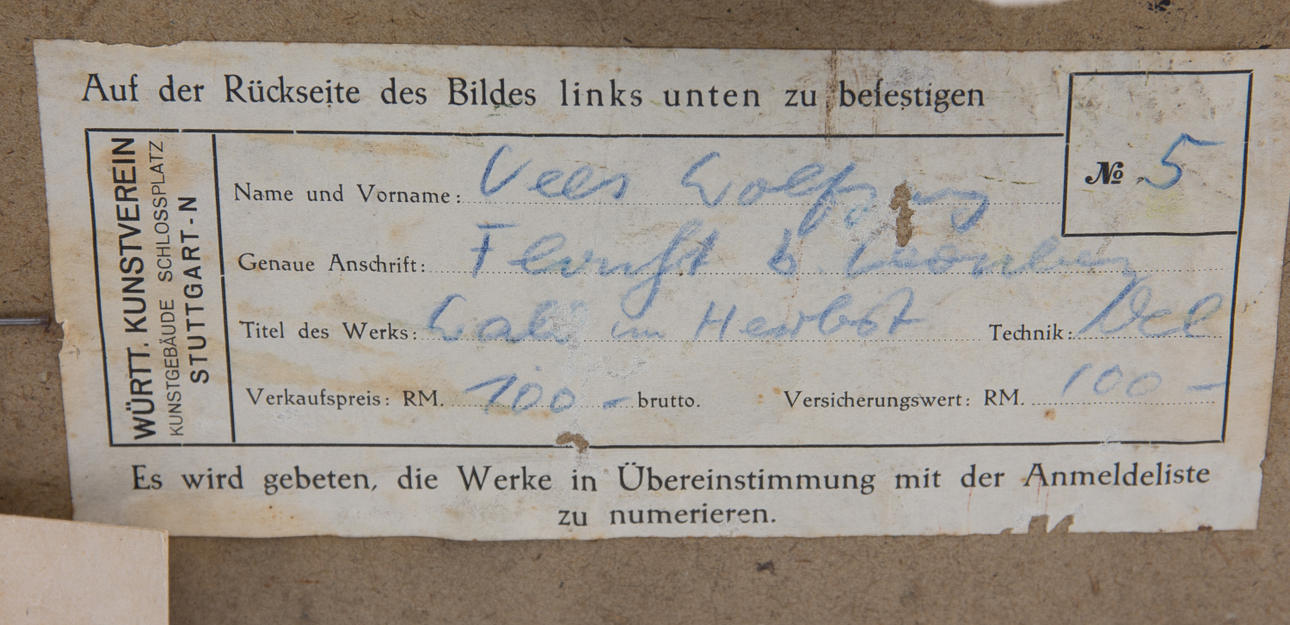 Auf der Rückseite des Bildes links unten zu befestigen
WÜRTT. KUNSTVEREIN
KUNSTGEBÄUDE SCHLOSSPLATZ
STUTTGART-N
№ 5
Name und Vorname: Vees Wolfgang
Genaue Anschrift: Flacht b. Leonberg
Titel des Werks: im Herbst Technik: Oel
Verkaufspreis: RM. 100 – brutto. Versicherungswert: RM. 100 –
Es wird gebeten, die Werke in Übereinstimmung mit der Anmeldeliste
zu numerieren.